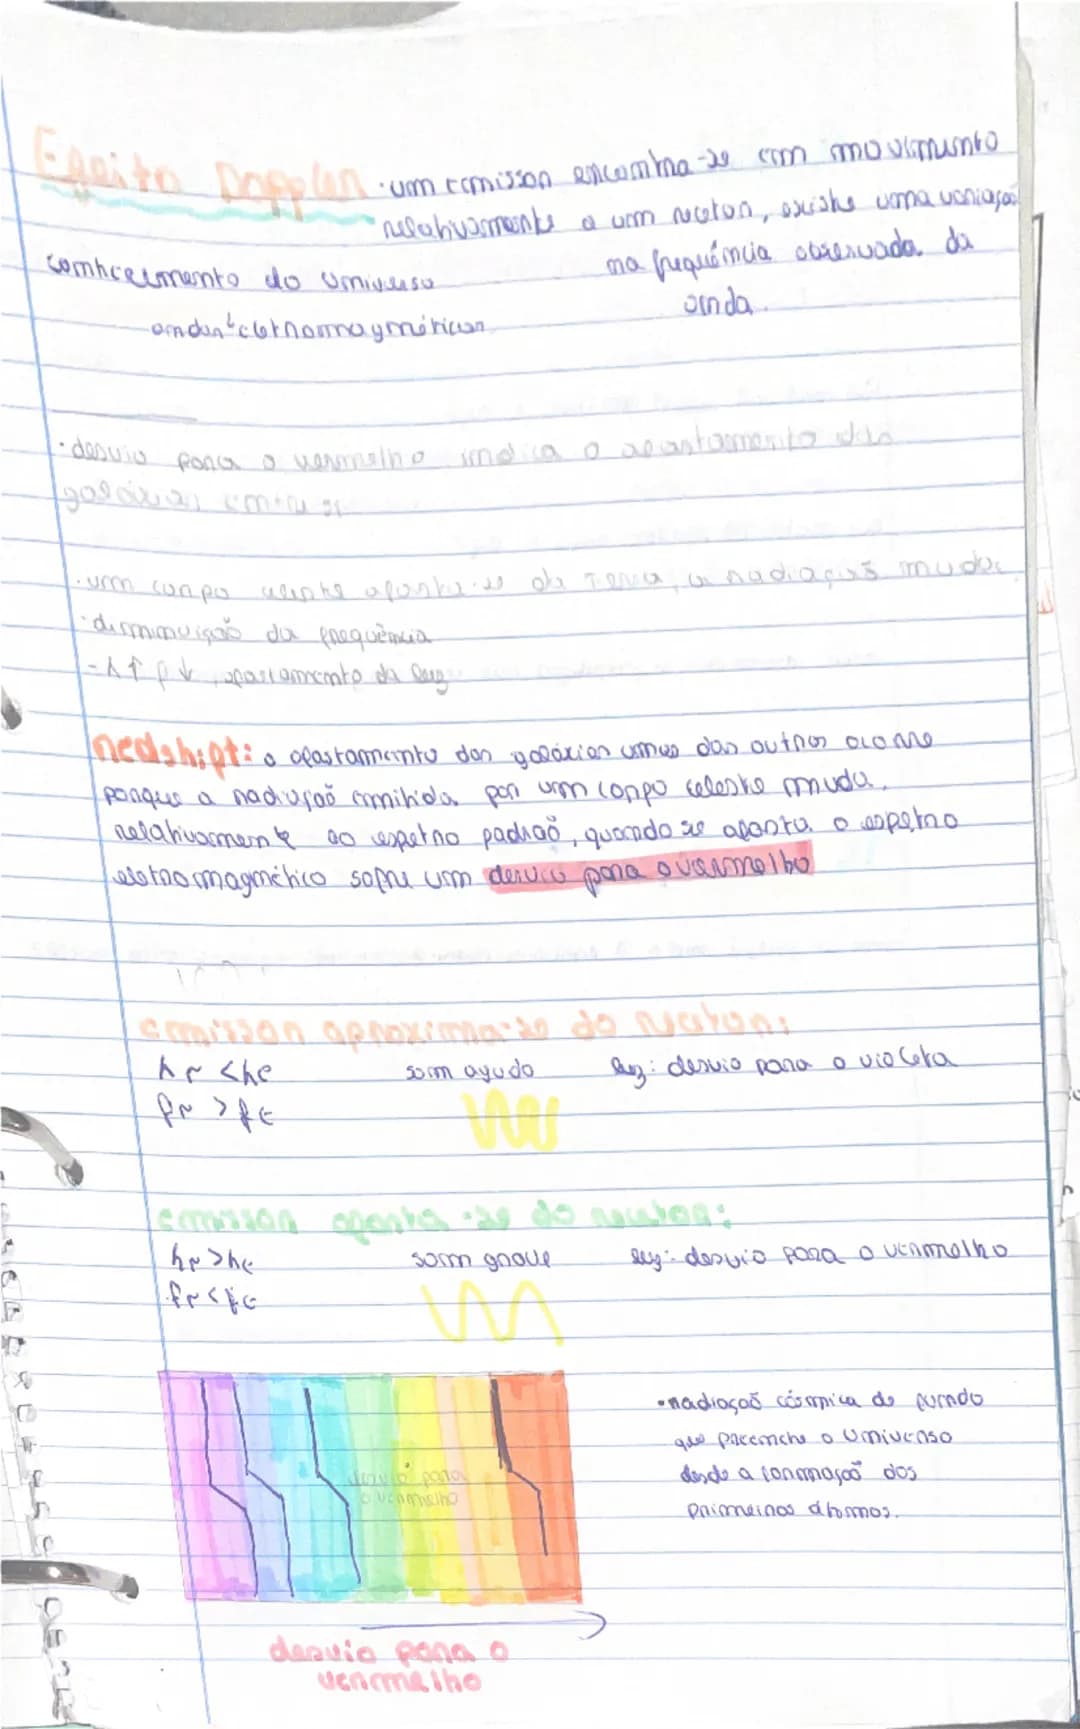 Efeito Doppler · um emissor encontra-se em movimento
relativamente a um recetor, existe uma variação
conhecimento do universo
na frequência observada da
onda.
ondas eletromagnéticas
· desvio para o vermelho indica o afastamento das
galáxias entre si
· um corpo celeste afasta-se da Terra, a radiação muda
· diminuição da frequência
- λ↑ f↓, afastamento da luz
redshift: o afastamento das galáxias umas das outras ocorre
porque a radiação emitida por um corpo celeste muda,
relativamente ao espetro padrão, quando se afasta o espetro
eletromagnético sofre um desvio para o vermelho
emissor aproxima-se do recetor:
λr < λe som agudo luz: desvio para o violeta
fr > fe
emissor afasta-se do recetor:
λr > λe som grave luz: desvio para o vermelho
fr < fe
desvio para
o vermelho
• radiação cósmica de fundo
que preenche o universo
desde a formação dos
primeiros átomos.
desvio para o
vermelho